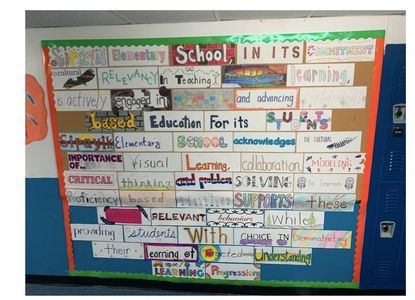 Elementary School, IN ITS COMMITMENT
cultural RELEVANCY In Teaching learning,
is actively engaged in and advancing
based Education For its STUDENTS
Elementary SCHOOL acknowledges THE CULTURAL
IMPORTANCE OF... Visual Learning, collaboration MODELING
CRITICAL thinking and problem SOLVING to learners
Proficiency based SUPPORTS these
RELEVANT behaviors While
providing students With CHOICE IN Demonstrating
their learning of Targeted Understanding
LEARNING Progressions